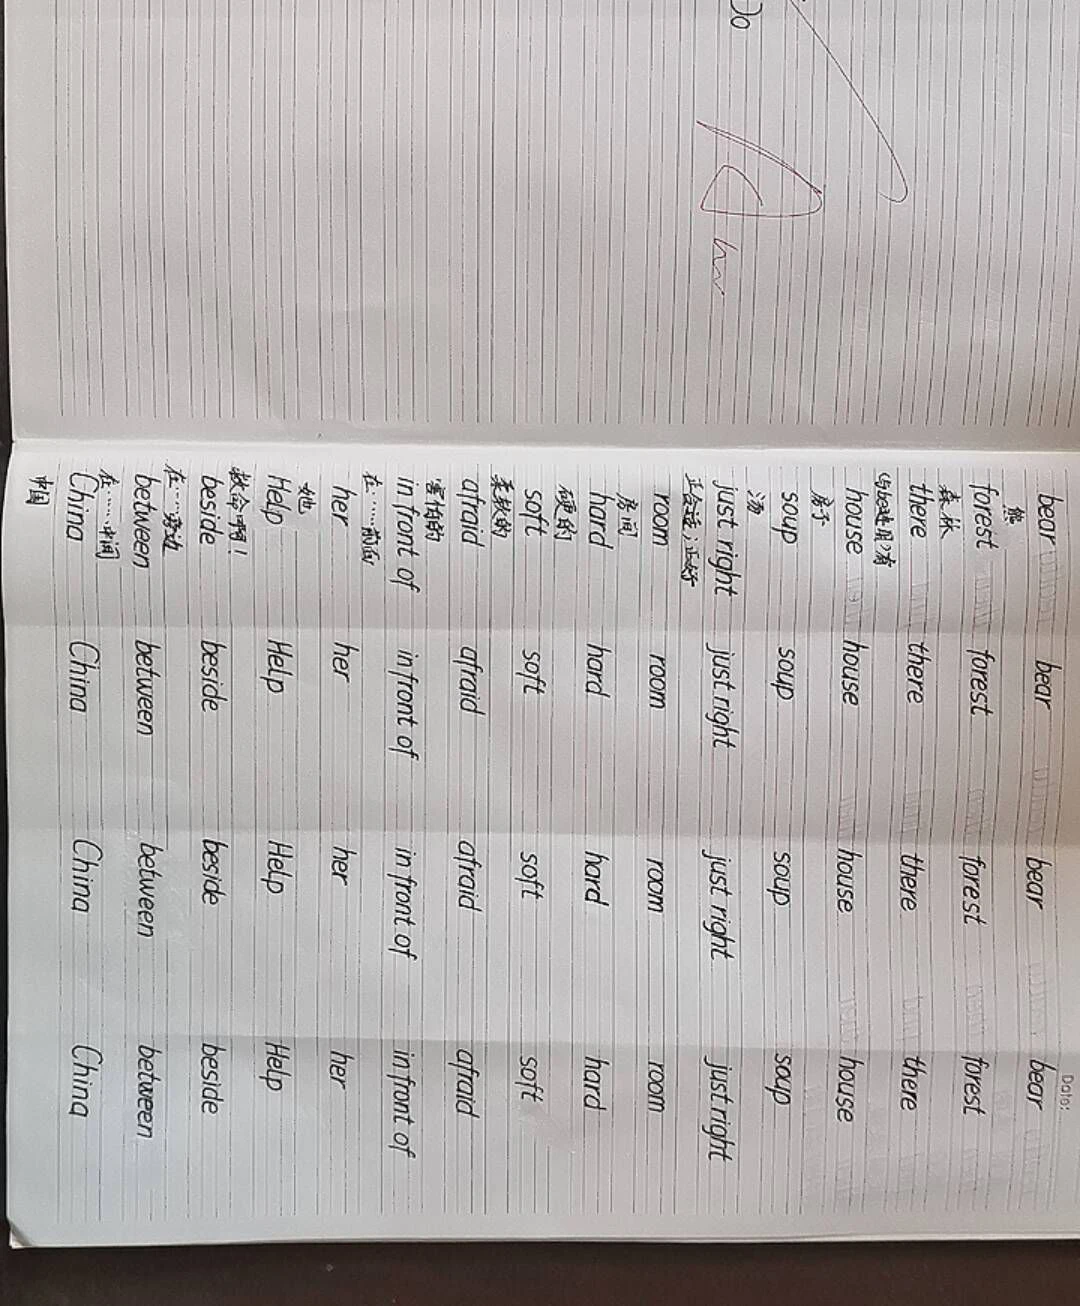 Date:
bear bear bear bear
熊
forest forest forest forest
森林
there there there there
(与be连用)有
house house house house
房子
soup soup soup soup
汤
just right just right just right just right
正合适;正好
room room room room
房间
hard hard hard hard
硬的
soft soft soft soft
柔软的
afraid afraid afraid afraid
害怕的
in front of in front of in front of in front of
在……前面
her her her her
她
Help Help Help Help
救命啊!
beside beside beside beside
在……旁边
between between between between
在……中间
China China China China
中国